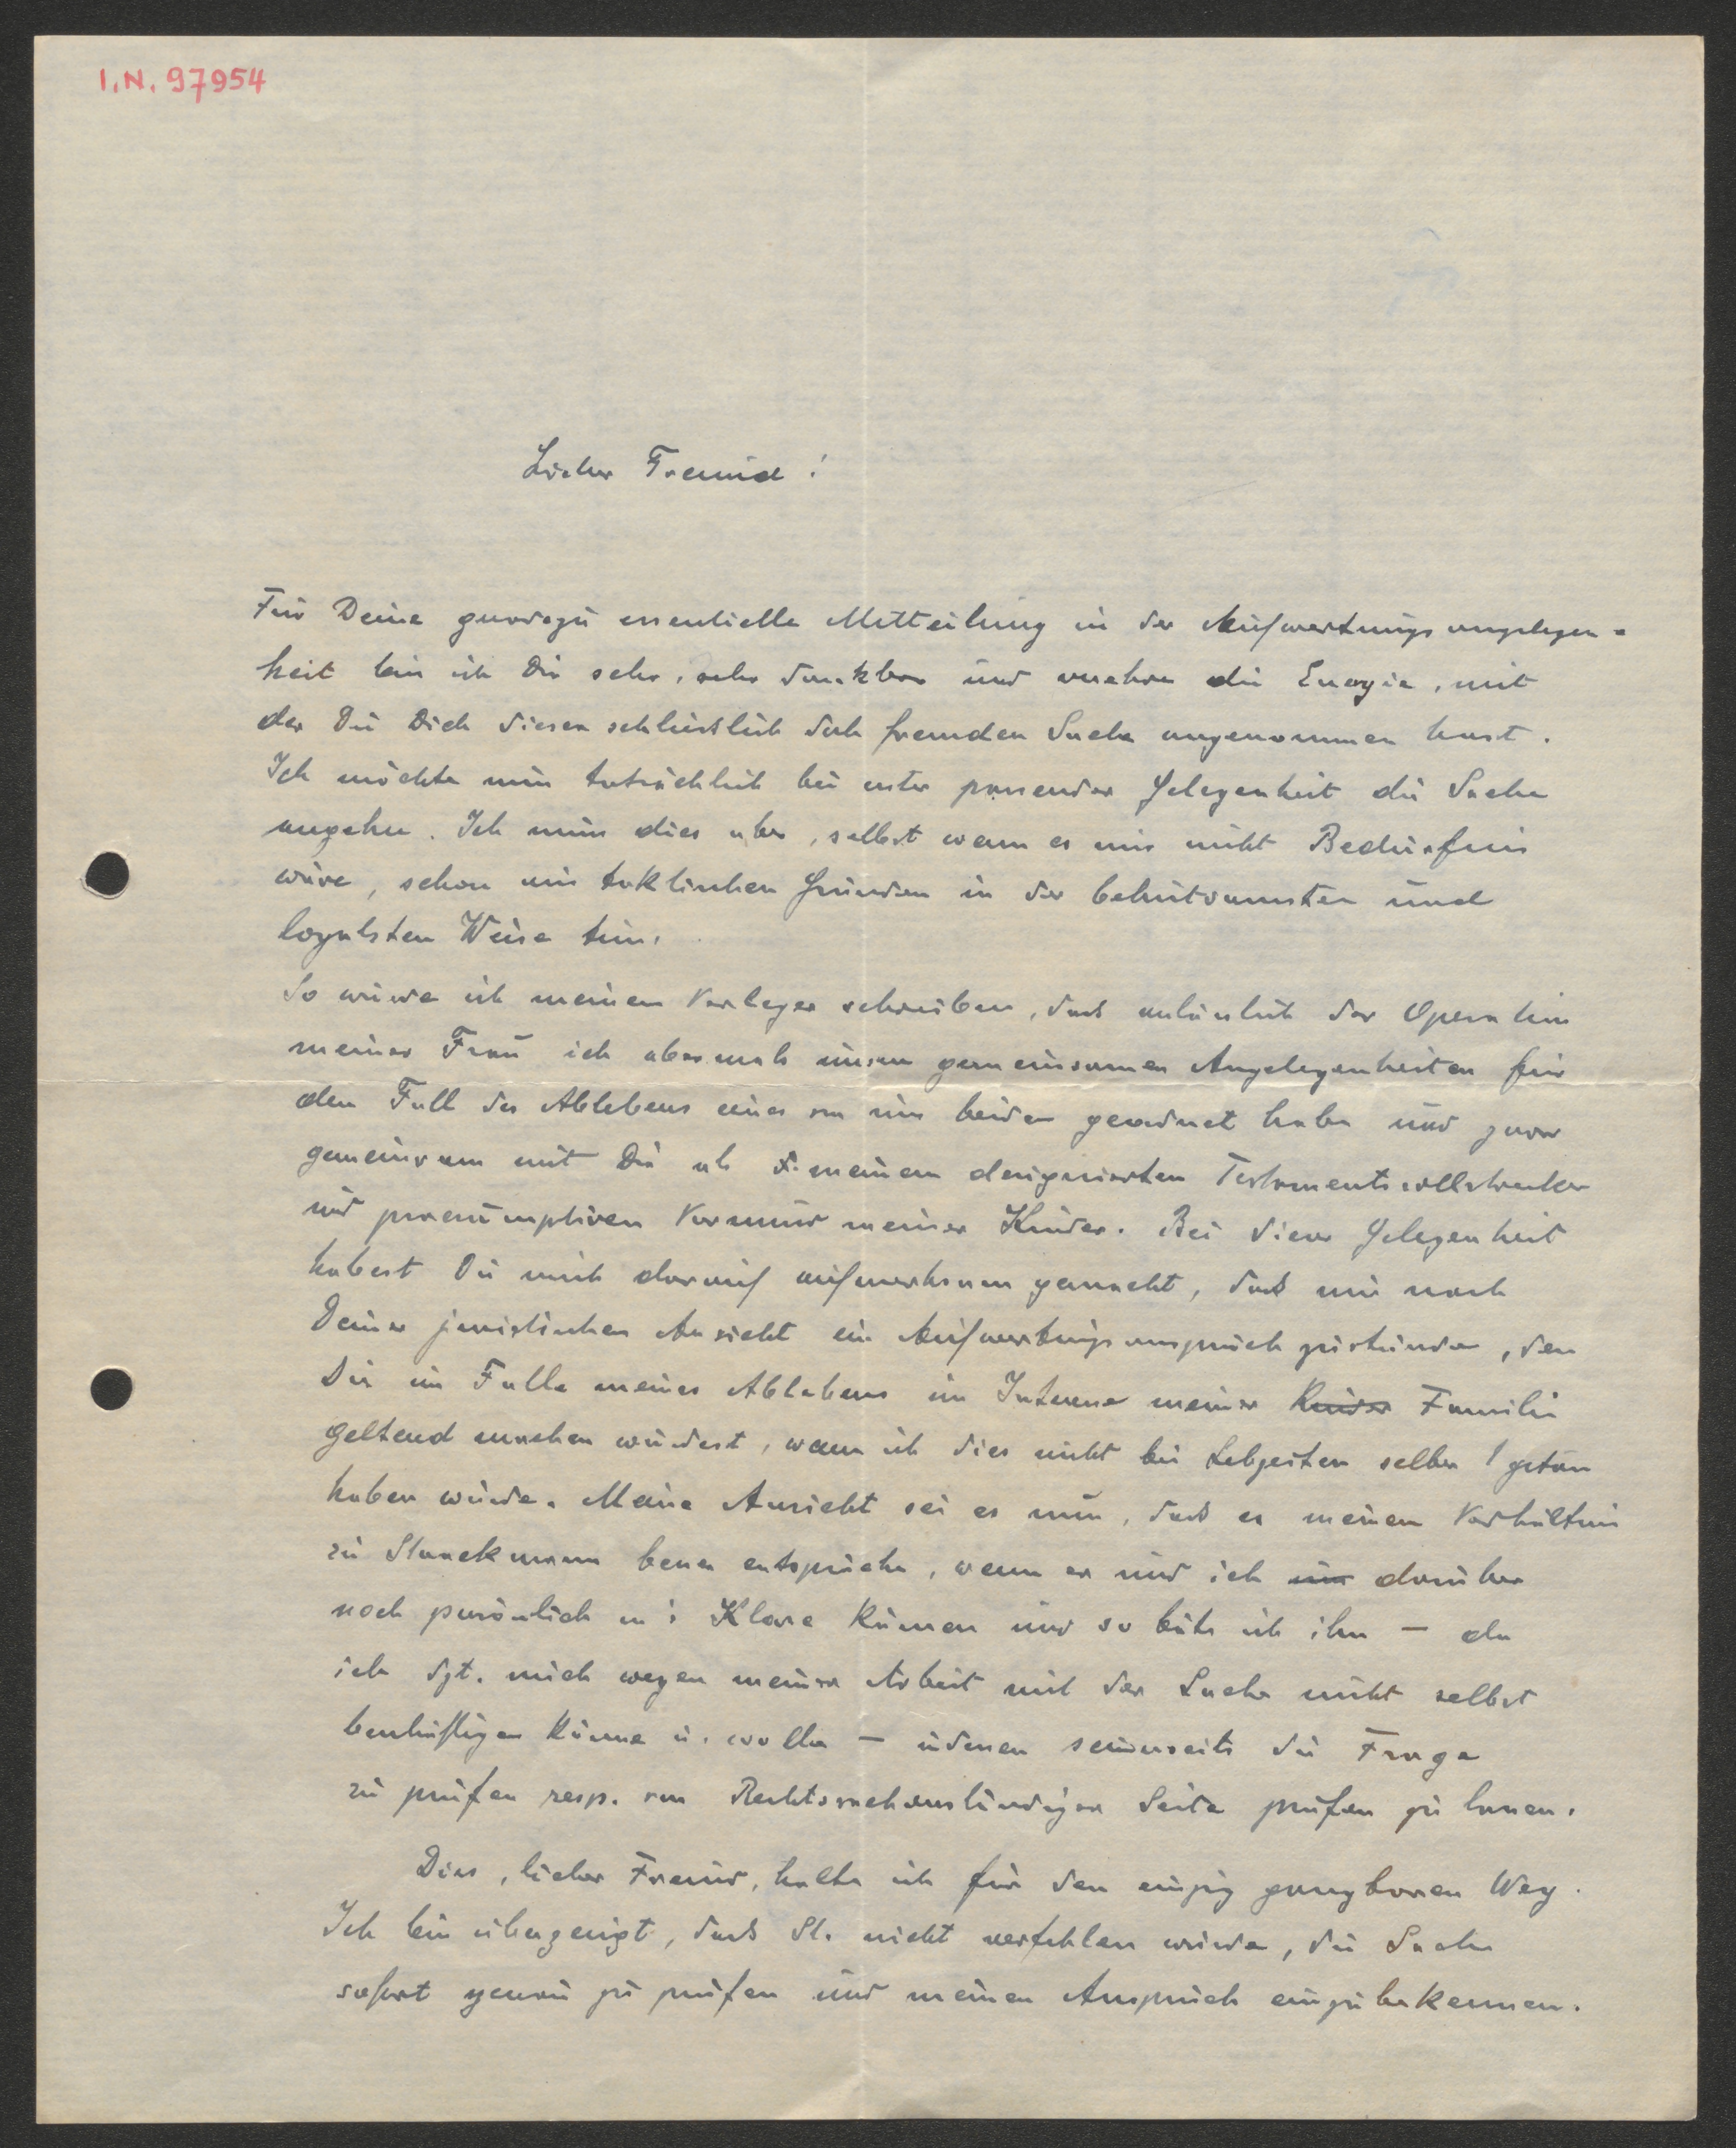 I.N. 97954
Lieber Freund!
Für Deine geradezu essentielle Mitteilung in der Aufwertungsangelegen-
heit bin ich Dir sehr, sehr dankbar und verehre die Energie, mit
der Du Dich dieser schliesslich doch fremden Sache angenommen hast.
Ich möchte nun tatsächlich bei erster passender Gelegenheit die Sache
angehen. Ich muss dies aber, selbst wenn es mir nicht Bedürfnis
wäre, schon aus taktischen Gründen in der behutsamsten und
loyalsten Weise tun.
So würde ich meinem Verleger schreiben, dass anlässlich der Operation
meiner Frau ich abermals unsere gemeinsamen Angelegenheiten für
den Fall des Ablebens eines von uns beiden geordnet habe und zwar
gemeinsam mit Dir als meinem designierten Testamentsvollstrecker
und praesumptiven Vormund meiner Kinder. Bei dieser Gelegenheit
habest Du mich darauf aufmerksam gemacht, dass mir nach
Deiner juristischen Ansicht ein Aufwertungsanspruch zustünde, den
Du im Falle meines Ablebens im Interesse meiner Kinder Familie
geltend machen würdest, wenn ich dies nicht bei Lebzeiten selber getan
haben würde. Meine Ansicht sei es nun, dass es meinem Verhältnis
zu Stanckmann besser entspräche, wenn er und ich uns darüber
noch persönlich in's Klare kämen und so bäte ich ihn — da
ich dzt. mich wegen meiner Arbeit mit der Sache nicht selbst
beschäftigen könne u. wolle — indessen seinerseits die Frage
zu prüfen resp. von Rechtssachverständiger Seite prüfen zu lassen.
Dies, lieber Freund, halte ich für den einzig gangbaren Weg.
Ich bin überzeugt, dass St. nicht verfehlen würde, die Sache
sofort genau zu prüfen und meinen Anspruch einzubekennen.